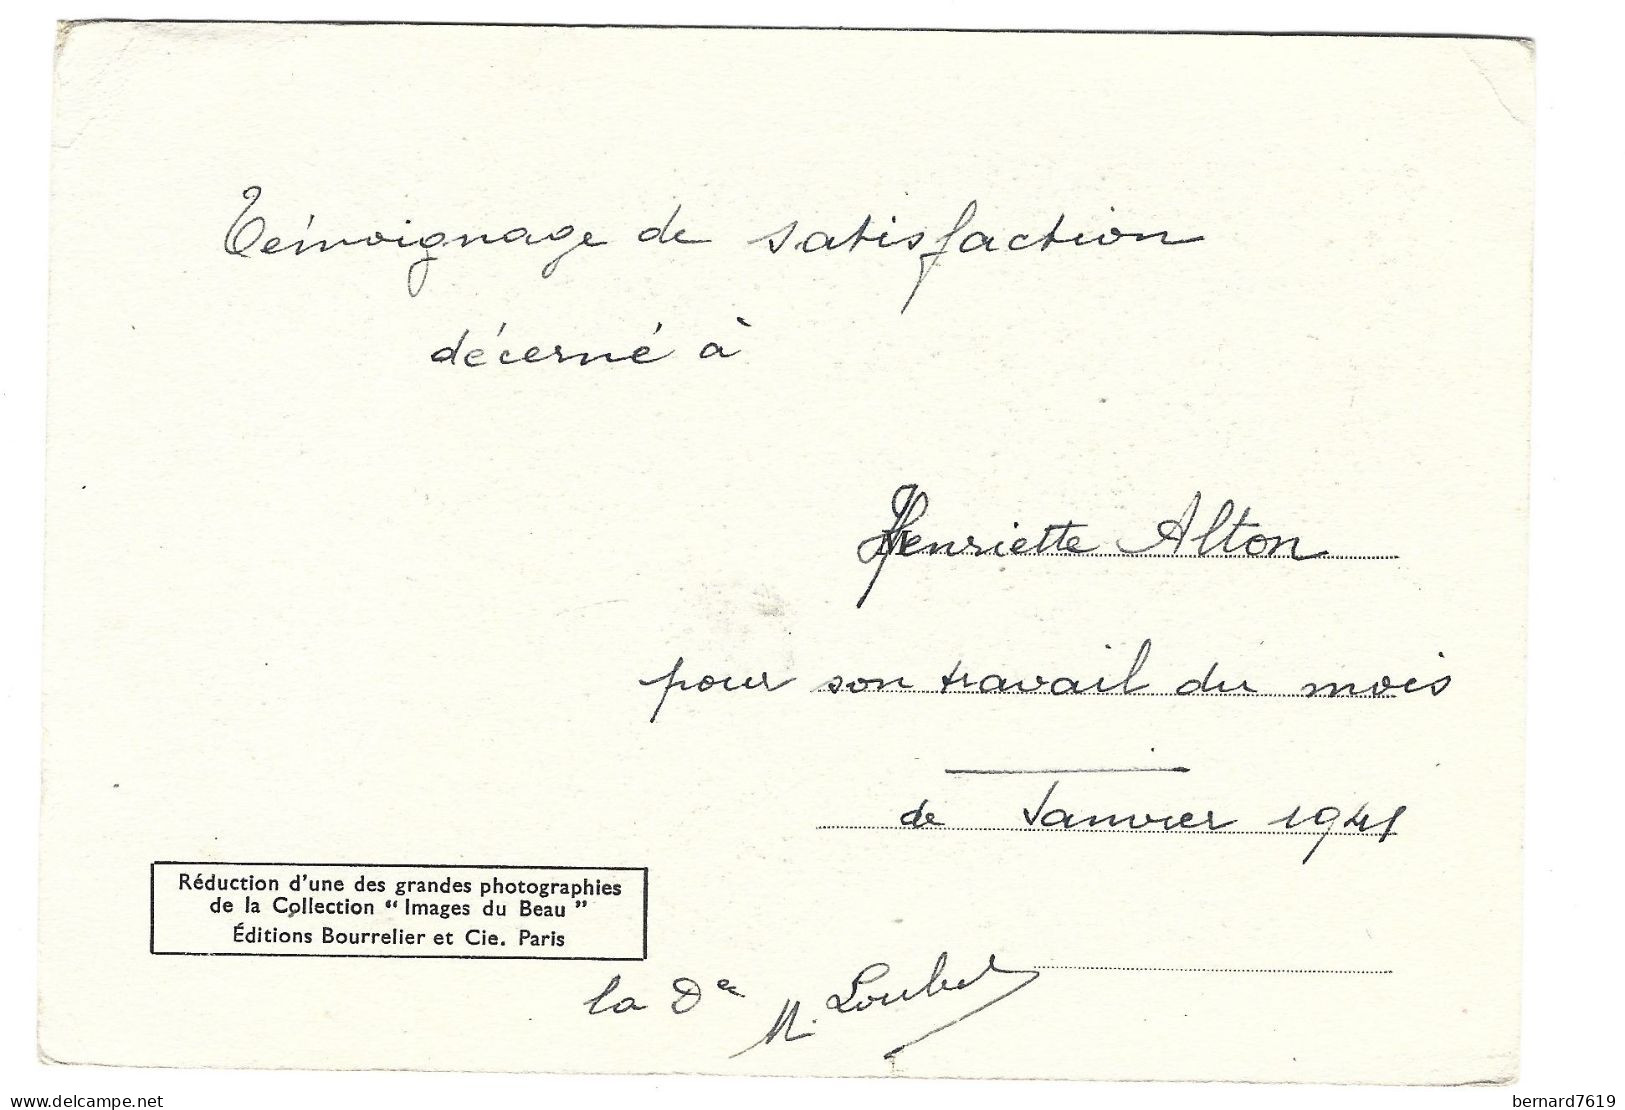 Témoignage de satisfaction
décerné à
Henriette Alton
pour son travail du mois
de Janvier 1941
Réduction d'une des grandes photographies
de la Collection “ Images du Beau ”
Éditions Bourrelier et Cie. Paris
la Dce M. Loubet
delcampe.net
bernard7619